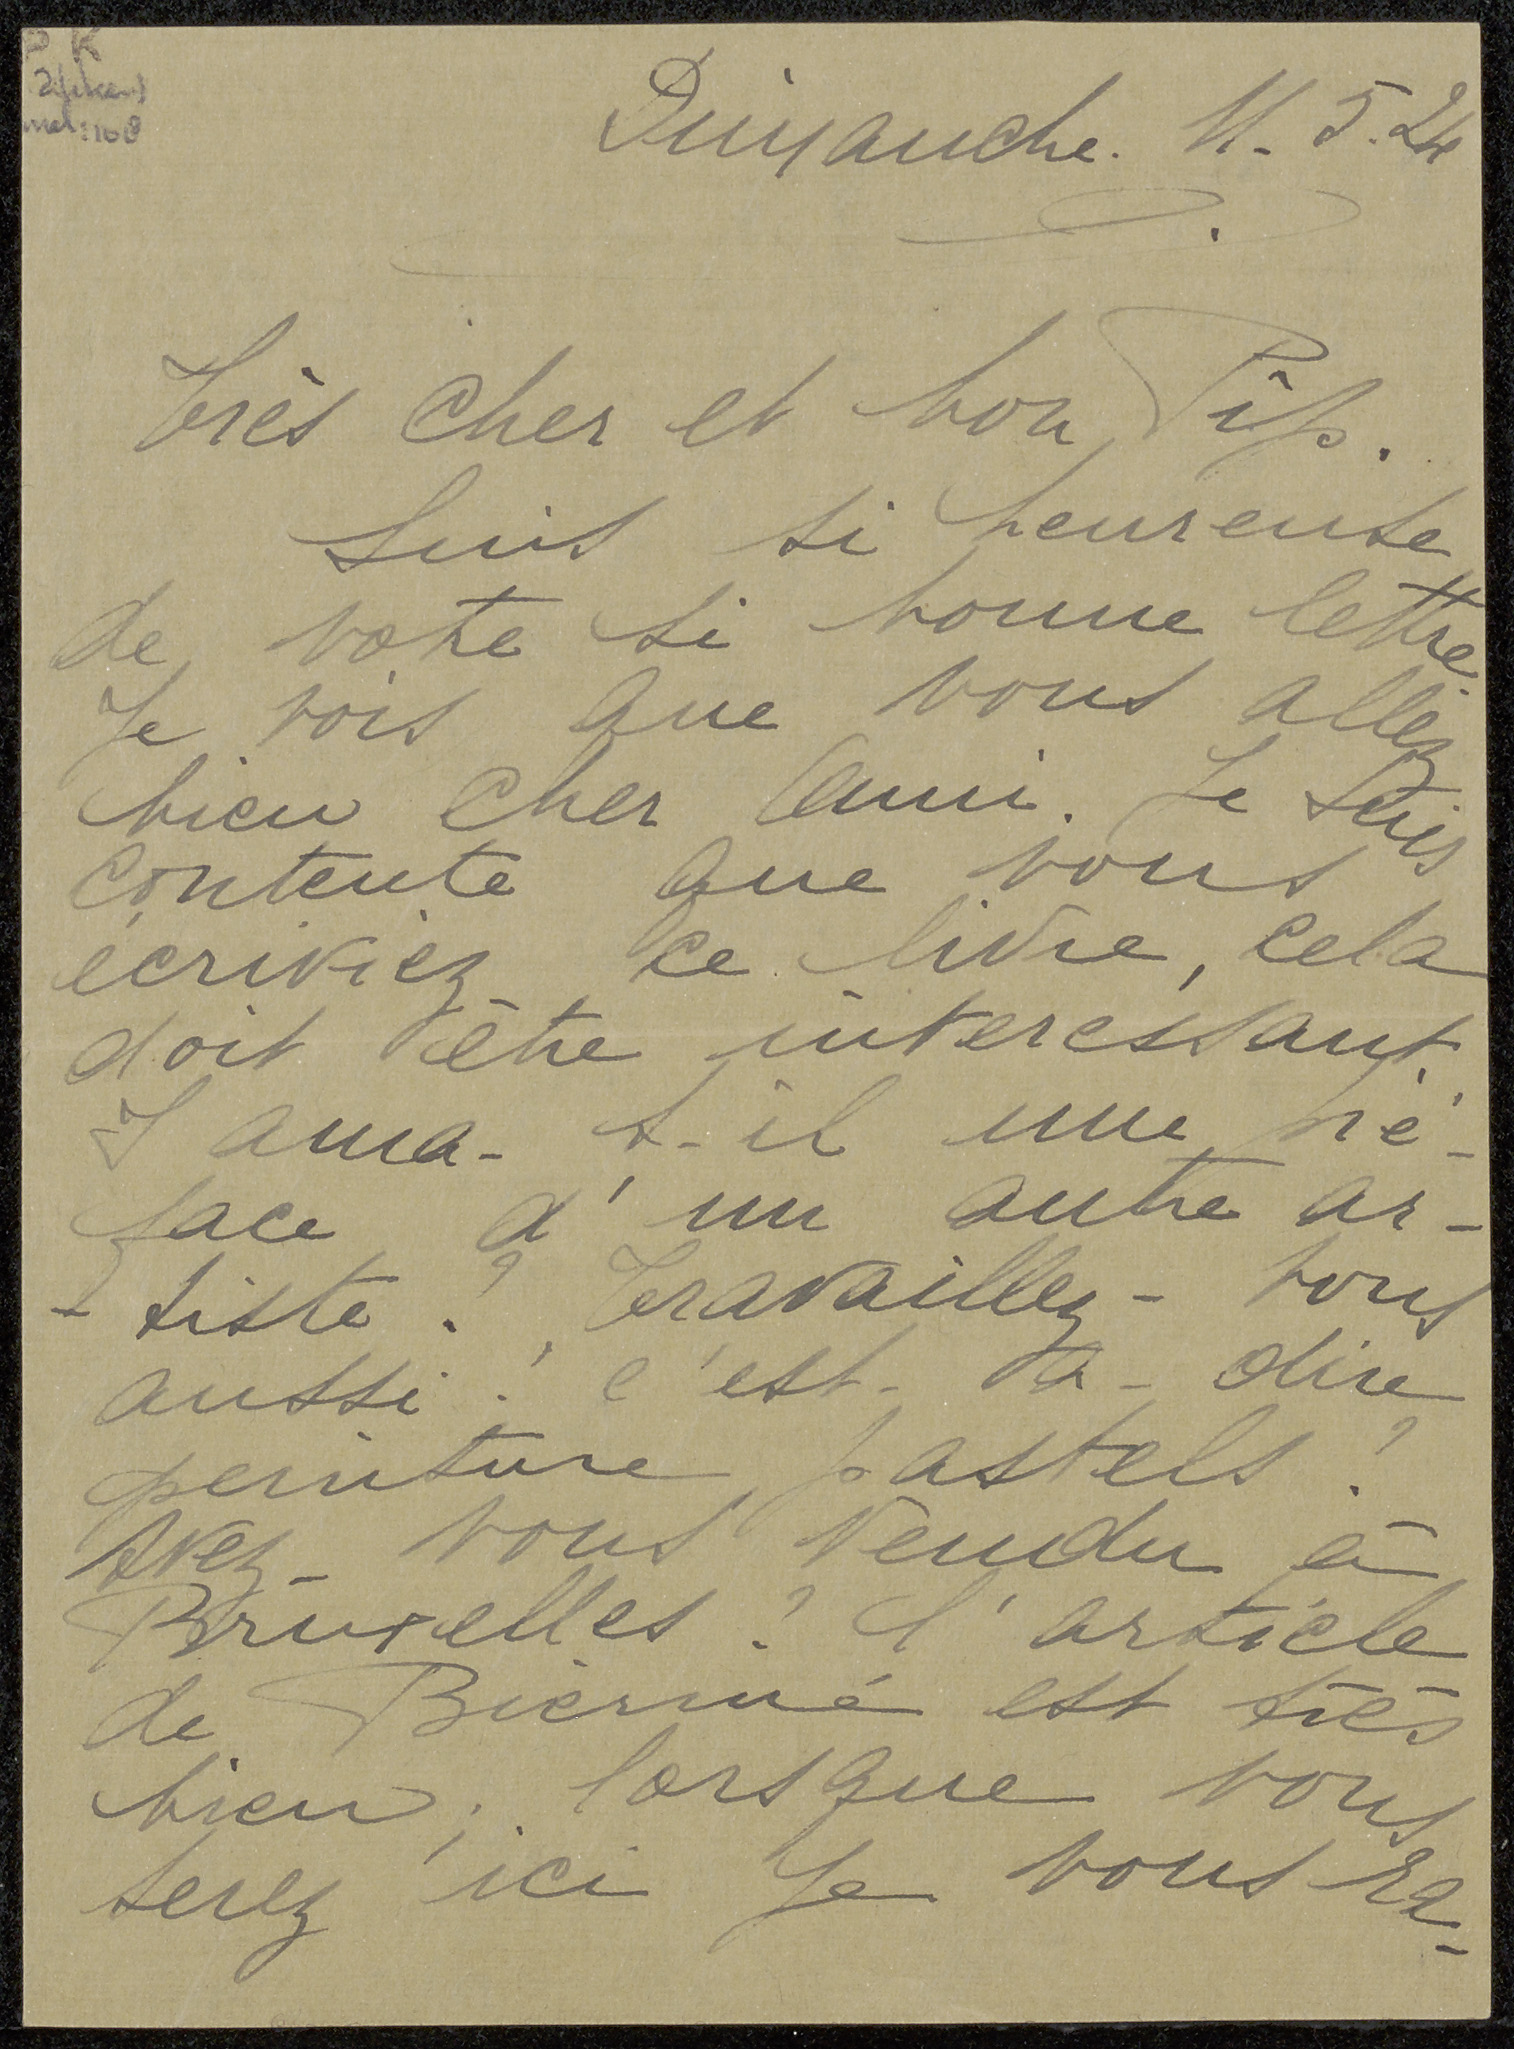 P K
Dimanche. 11. 5. 24
Très cher et bon Pip.
Suis si heureuse
de votre si bonne lettre.
Je vois que vous allez
bien cher ami. Je suis
contente que vous
écriviez ce livre, cela
doit être interessant.
Y aura-t-il une pré-
face d'un autre ar-
-tiste? Travaillez-vous
aussi? c'est-à-dire
peinture, pastels?
Avez-vous vendu à
Bruxelles? l'article
de Biermé est très
bien; lorsque vous
serez ici je vous ra-